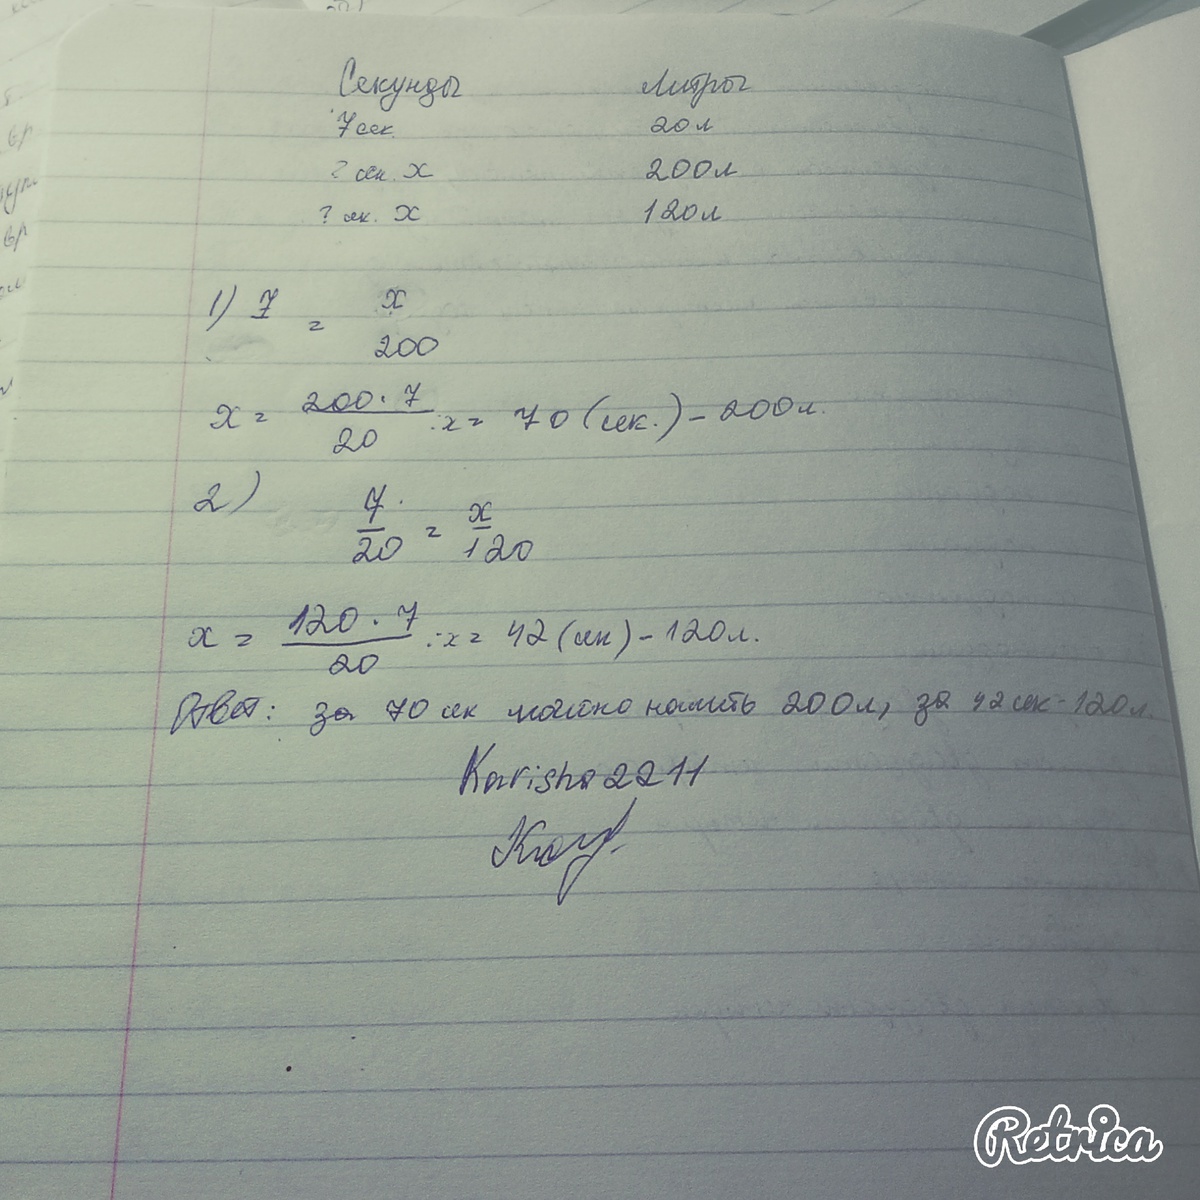 Секунды Литры
7 сек. 20 л
? сек. x 200 л
? сек. x 120 л
1) 7 = x
200
x = 200 · 7 / 20 ; x = 70 (сек.) - 200 л.
2) 7/20 = x/120
x = 120 · 7 / 20 ; x = 42 (сек) - 120 л.
Ответ: за 70 сек можно налить 200 л, за 42 сек - 120 л.
Karisha2211
Retrica